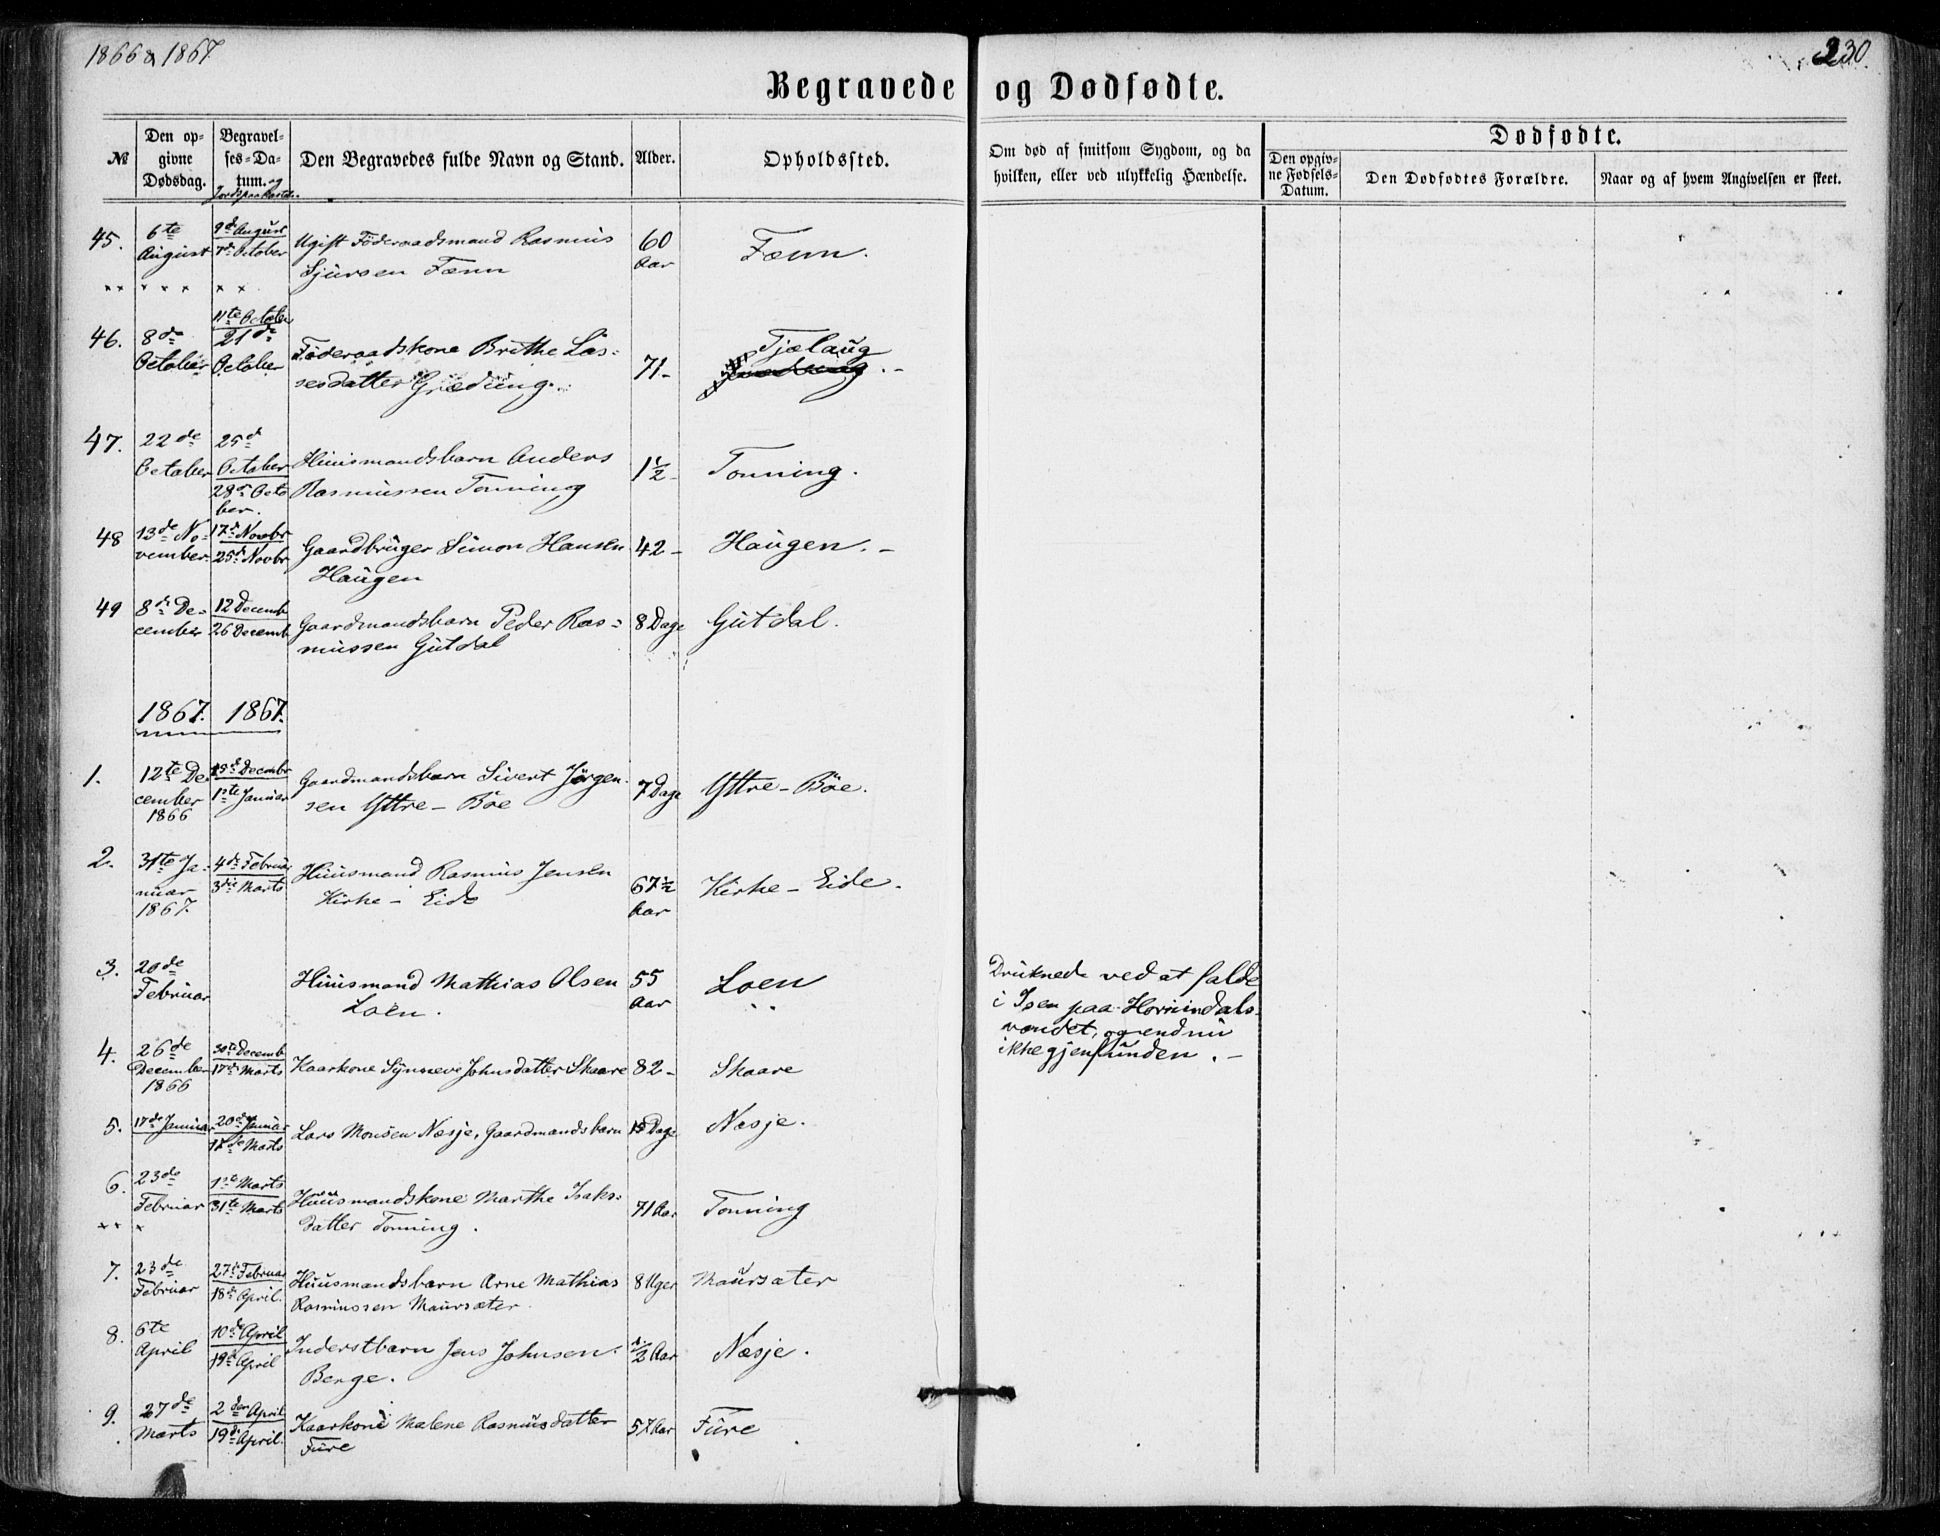 1866 & 1867
230.
Begravede og Dødfødte.
№
Den op-
givne
Dødsdag.
Begravel-
ses-Da-
tum. og
Jordpaakastelse.
Den Begravedes fulde Navn og Stand.
Alder.
Opholdssted.
Om død af smitsom Sygdom, og da
hvilken, eller ved ulykkelig Hændelse.
Dødfødte.
Den opgiv-
ne Fødsels-
Datum.
Den Dødfødtes Forældre.
Naar og af hvem Angivelsen er skeet.
45.
6te
August
9de August
7de October
Ugift Föderaadsmand Rasmus
Sjursen Fænn
60
Aar
Fænn.
46.
8de
October
11te October
21de
October
Föderaadskone Brithe Las-
sesdatter Græding.
71-
Tjælaug
47.
22de
October
25de
October
28de Octo
ber.
Huusmandsbarn Anders
Rasmussen Tonning
1½-
Tonning.
48
13de No-
vember.
17de Novbr
25de Novbr
Gaardbruger Simon Hansen
Haugen
42-
Haugen.-
49
8de De-
cember
12 Decemb
26 Decemb
Gaardmandsbarn Peder Ras-
mussen Gutdal
8 Dage
Gutdal.
1867. 1867.
1.
12te De-
cember
1866
15de Decembr
1ste Januar
Gaardmandsbarn Sivert Jörgen-
sen Yttre-Böe
7 Dage
Yttre-Böe.
2.
31te Ja-
nuar
1867.
4de Februar
3die Marts
Huusmand Rasmus Jensen
Kirke-Eide
67½
Aar
Kirke-Eide.
3.
20de
Februar
Huusmand Mathias Olsen
Loen.
55
Aar
Loen
Druknede ved at falde
i Isen paa Hornindals-
vandet, og endnu
ikke gjenfunden.-
4.
26de
December
1866
30te Decemb
17de Marts
Kaarkone Synneve Johnsdatter Skaare
82-
Skaare
5.
17de Januar
20de Januar
17de Marts
Lars Monsen Næsje, Gaardmandsbarn
15 Dage
Næsje.
6.
23de
Februar
1ste Marts
31te Marts
Huusmandskone Marthe Isaks-
datter Tonning.
71 Aar
Tonning
7.
23de
Februar
27de Februar
18de April.
Huusmandsbarn Arne Mathias
Rasmussen Maursæter.
8 Uger
Maursæter
8.
6te
April
10de April
19de April
Inderstbarn Jens Johnsen
Berge.
½ Aar
Næsje.
9.
27de
Marts
2den April
19de April.
Kaarkone Malene Rasmusdatter
Fure
57 Aar
Fure